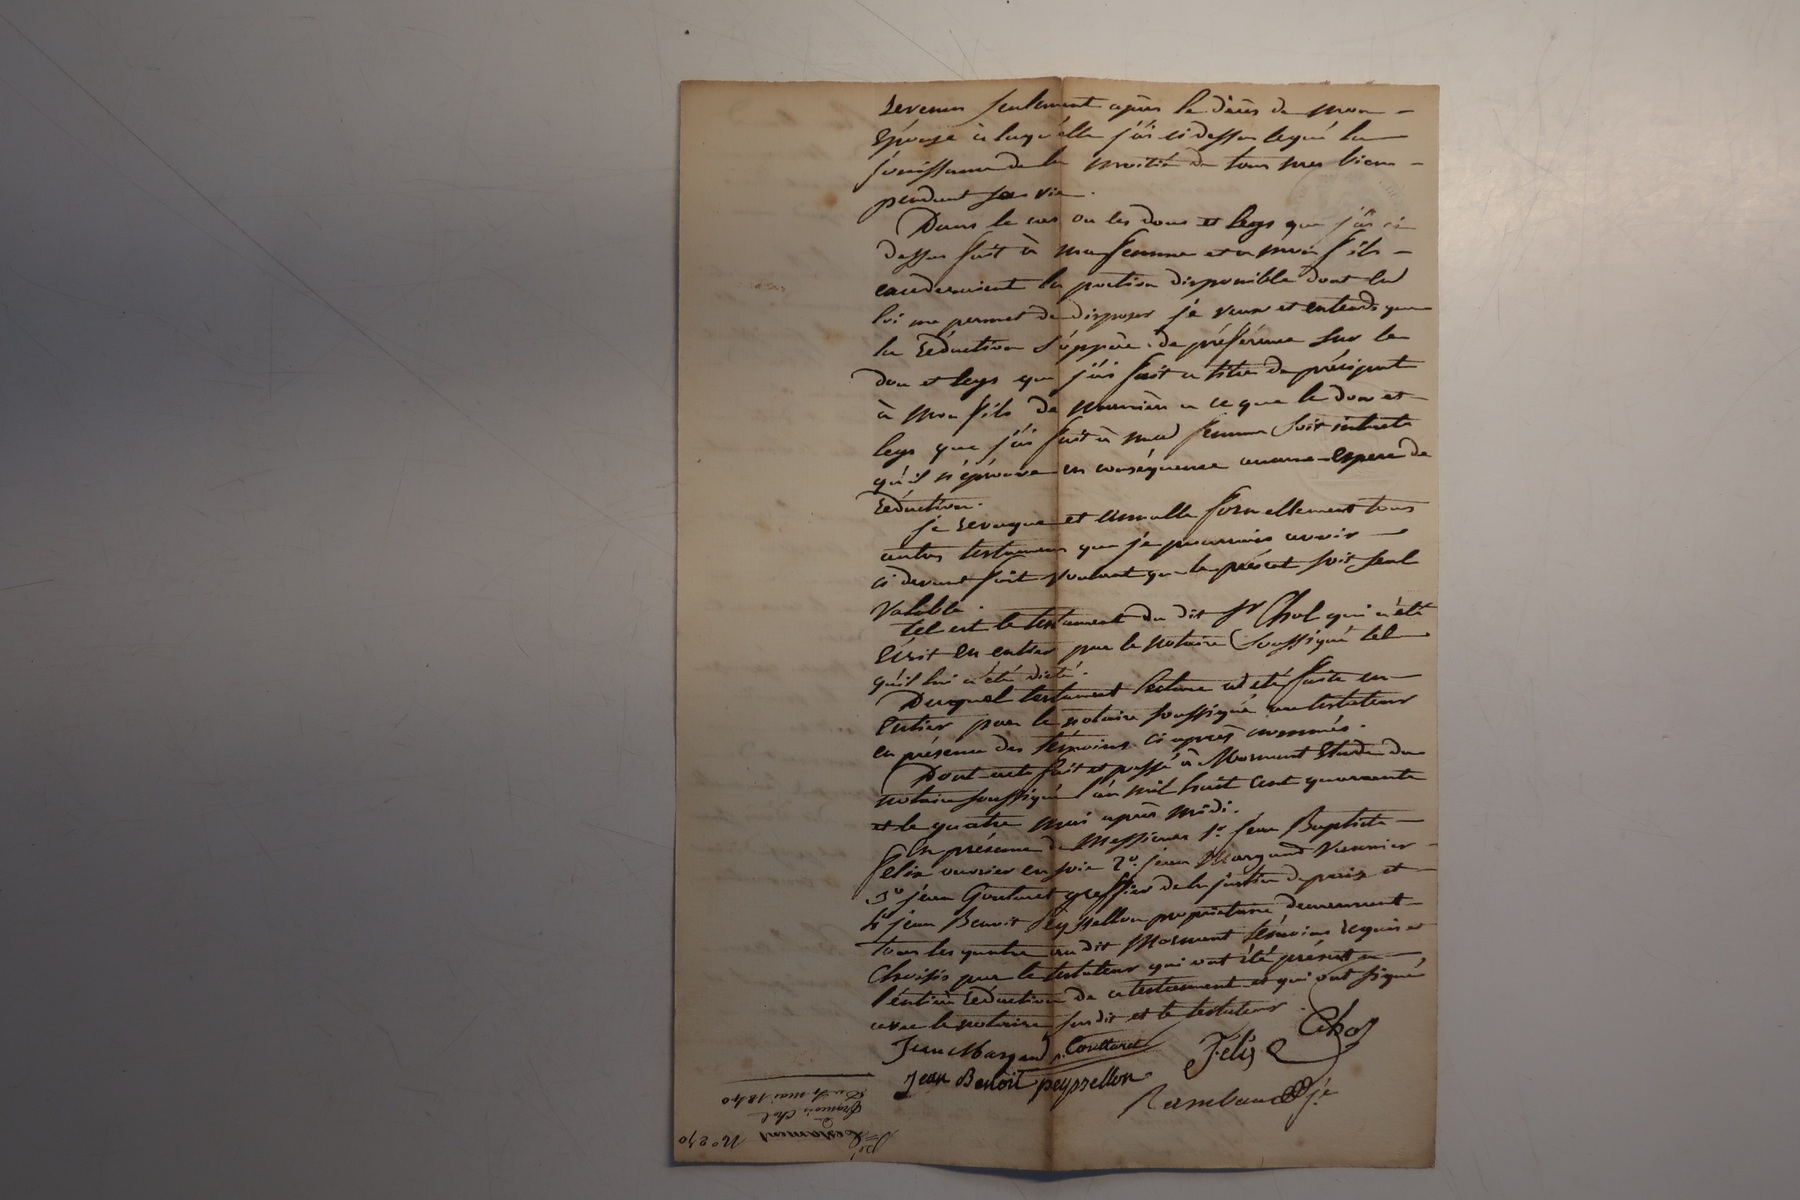 revenus seulement après le décès de mon
épouse à laquelle j'ai ci dessus legué la
jouissance de la moitié de tous mes biens
pendant sa vie.
Dans le cas ou les dons et legs que j'ai ci
dessus fait à ma femme et a mon fils
excederaient la portion disponible dont la
loi me permet de disposer je veux et entends que
la réduction s'oppère de préférence sur le
don et legs que j'ai fait a titre de préciput
à mon fils de manière a ce que le don et
legs que j'ai fait à ma femme soit intacte
qu'il n'éprouve en conséquence aucune espece de
réduction.
je revoque et annulle formellement tous
autres testamens que je pourrais avoir
ci devant fait voulant que le présent soit seul
valable.
tel est le testament du dit Sr Chol qui a été
écrit en entier par le notaire soussigné tel
qu'il lui a été dicté.
Duquel testament lecture a été faite en
entier par le notaire soussigné au testateur
en présence des témoins ci après nommés.
Dont acte fait et passé à Mornant Etude du
notaire soussigné l'an mil huit cent quarante
et le quatre mai après midi.
En présence de Messieurs 1º jean Baptiste
Felix ouvrier en soie 2º jean Margand Vannier
3º jean Goutaret greffier de la justice de paix et
4º jean Benoit Peyssellon propriétaire demeurant
tous les quatre au dit Mornant témoins requis et
choisis par le testateur qui ont été présent a
l'entière rédaction de ce testament et qui ont signé
avec le notaire susdit et le testateur
Chol
Jean Margand Goutaret Félix
Jean Benoit peyssellon
Rambaud
Nº 230
Testament
de
François Chol
Du 4 mai 1840